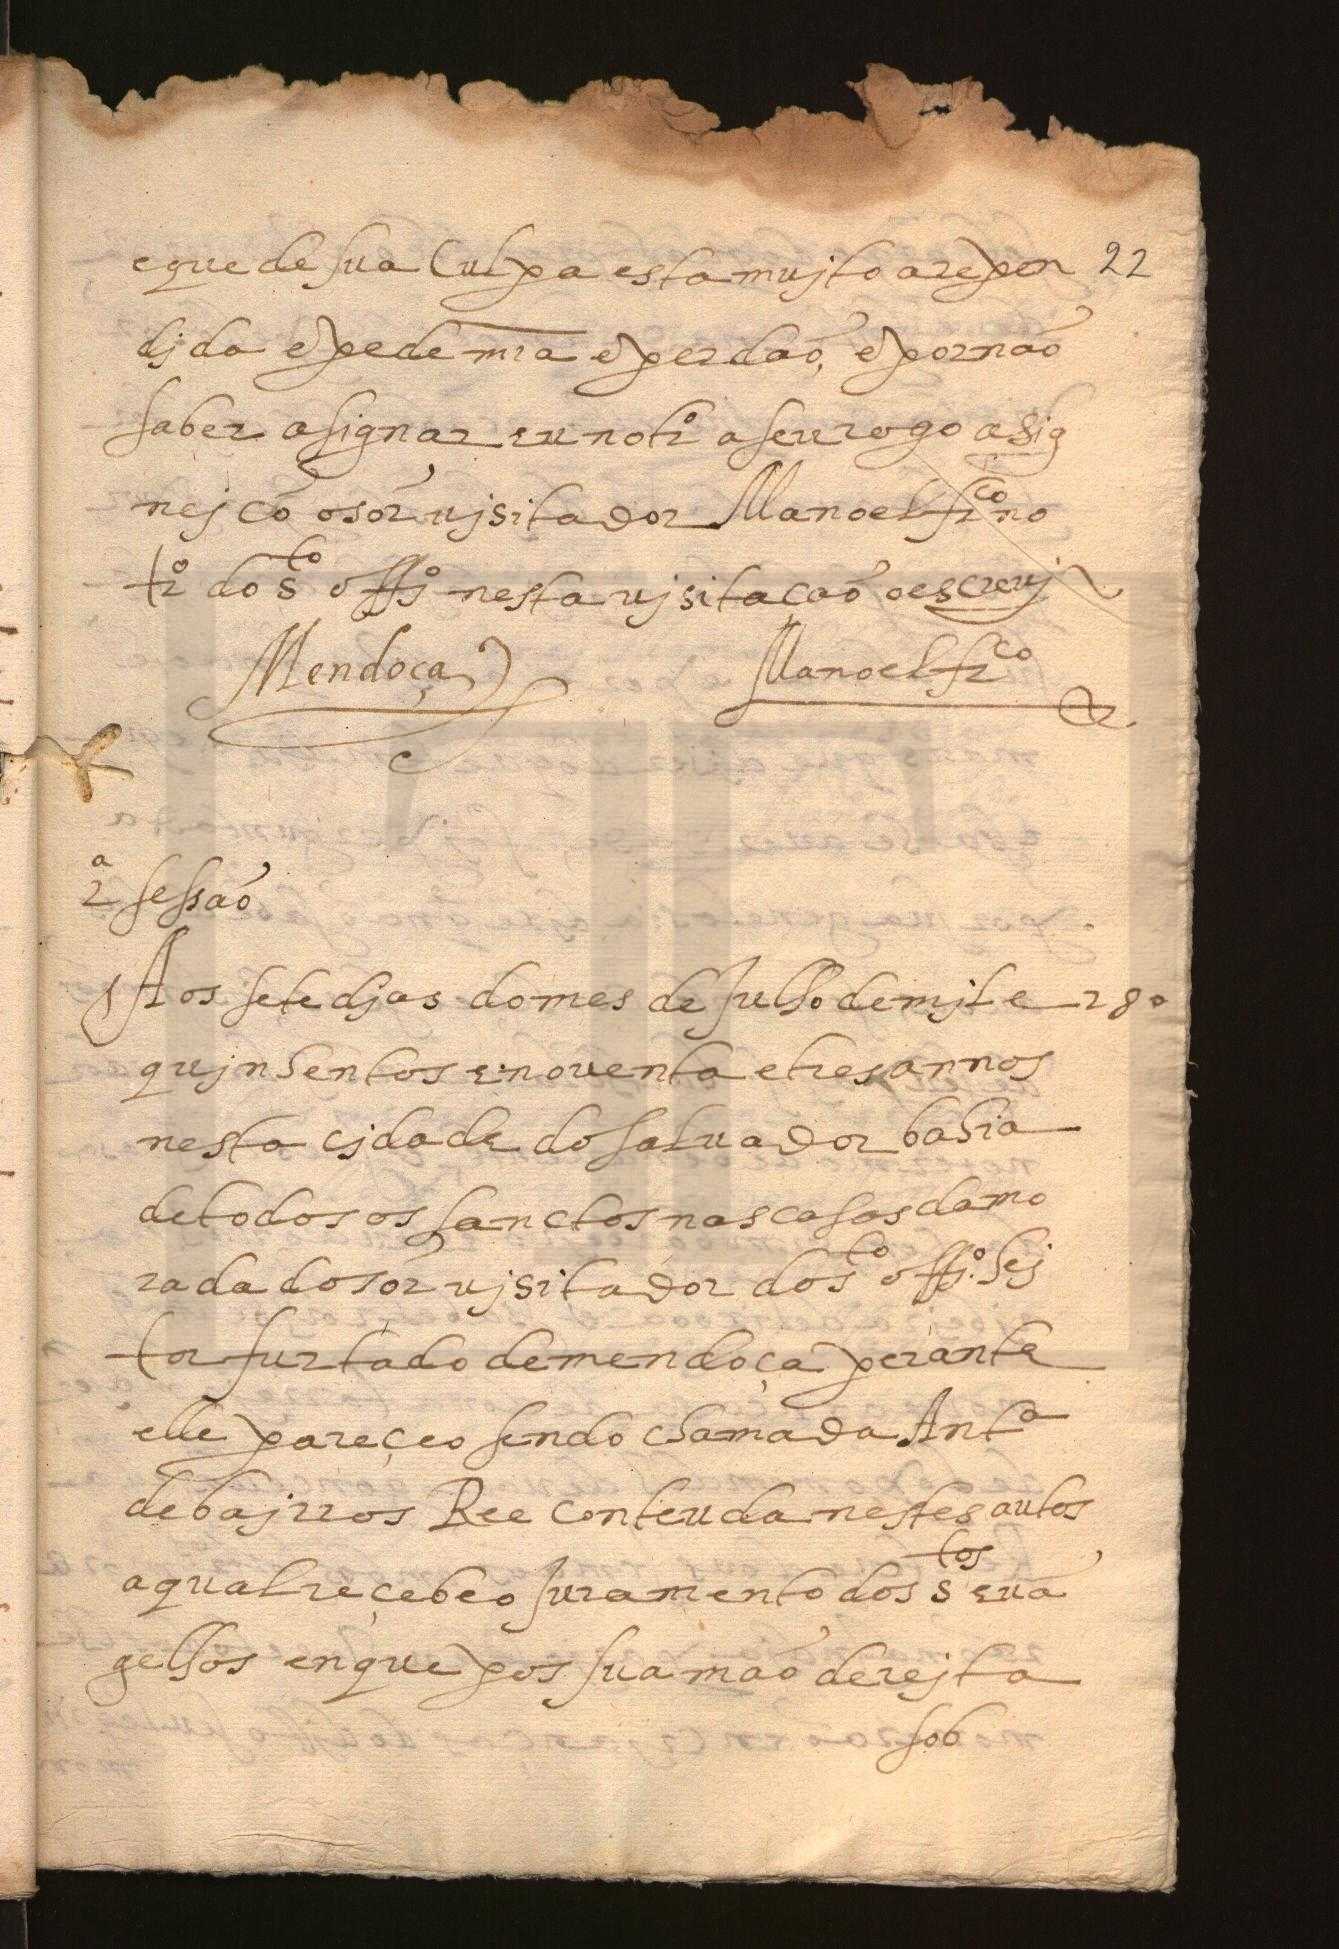 e que de sua Culpa esta mujto arepen 22
djda e pede mrã e perdaõ, e por naõ
saber asignar eu notro a seu rogo asig
nej cõ o sõr vjsitador Manoel frco no
tro do sto offo nesta vjsitaçaõ o escrevj
Mendoça Manoel frco
2a sessaõ
Aos sete djas do mes de Julho de mjl e 28º
qujnhentos e noventa e tres annos
nesta cjdade do salvador bahia
de todos os sanctos nas casas da mo
rada do sõr vjsitador do sto offo. hej
tor furtado de mendoça perante
elle pareçeo sendo chamada Anta
de bajrros Ree conteuda nestes autos
a qual reçebeo Juramento dos stos evã
gelhos en que pos sua maõ derejta
sob